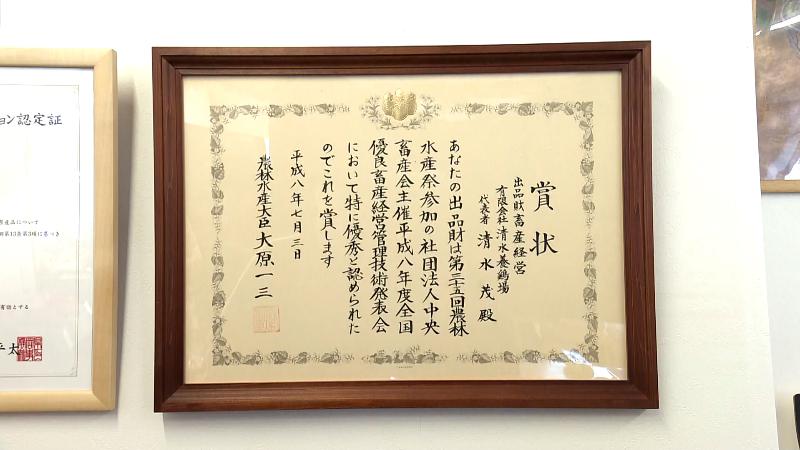 賞状
出品財畜産経営
有限会社清水養鶏場
代表者 清水茂殿
あなたの出品財は第三五回農林
水産祭参加の社団法人中央
畜産会主催平成八年度全国
優良畜産経営管理技術発表会
において特に優秀と認められた
のでこれを賞します
平成八年七月三日
農林水産大臣大原一三
ョン認定証
産品について
第13条第3項に基づき
有効とする
平太